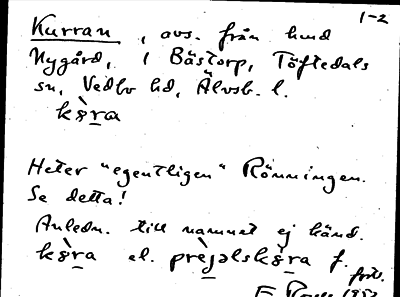 1-2
Kurran, avs. från hmd
Nygård, i Bästorp, Töftedals
sn, Vedbo hd, Älvsb. l.
ks̀ra
Heter "egentligen" Rönningen.
Se detta!
Anledn. till namnet ej känd.
ks̀ra el. prèjəlsks̀ra f.